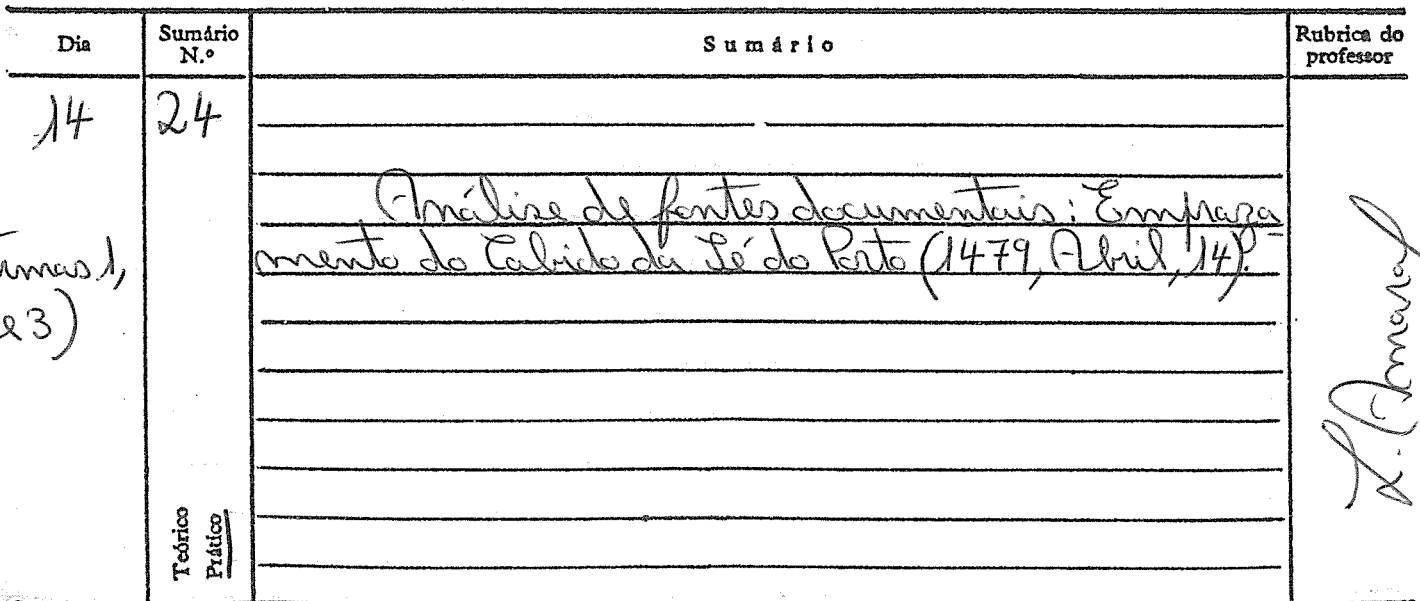 Dia
Sumário
N.º
Sumário
Rubrica do
professor
14
24
Análise de fontes documentais: Empraza-
mento do Cabido da Sé do Porto (1479, Abril, 14).
1,
e 3)
L. Amaral
Teórico
Prático